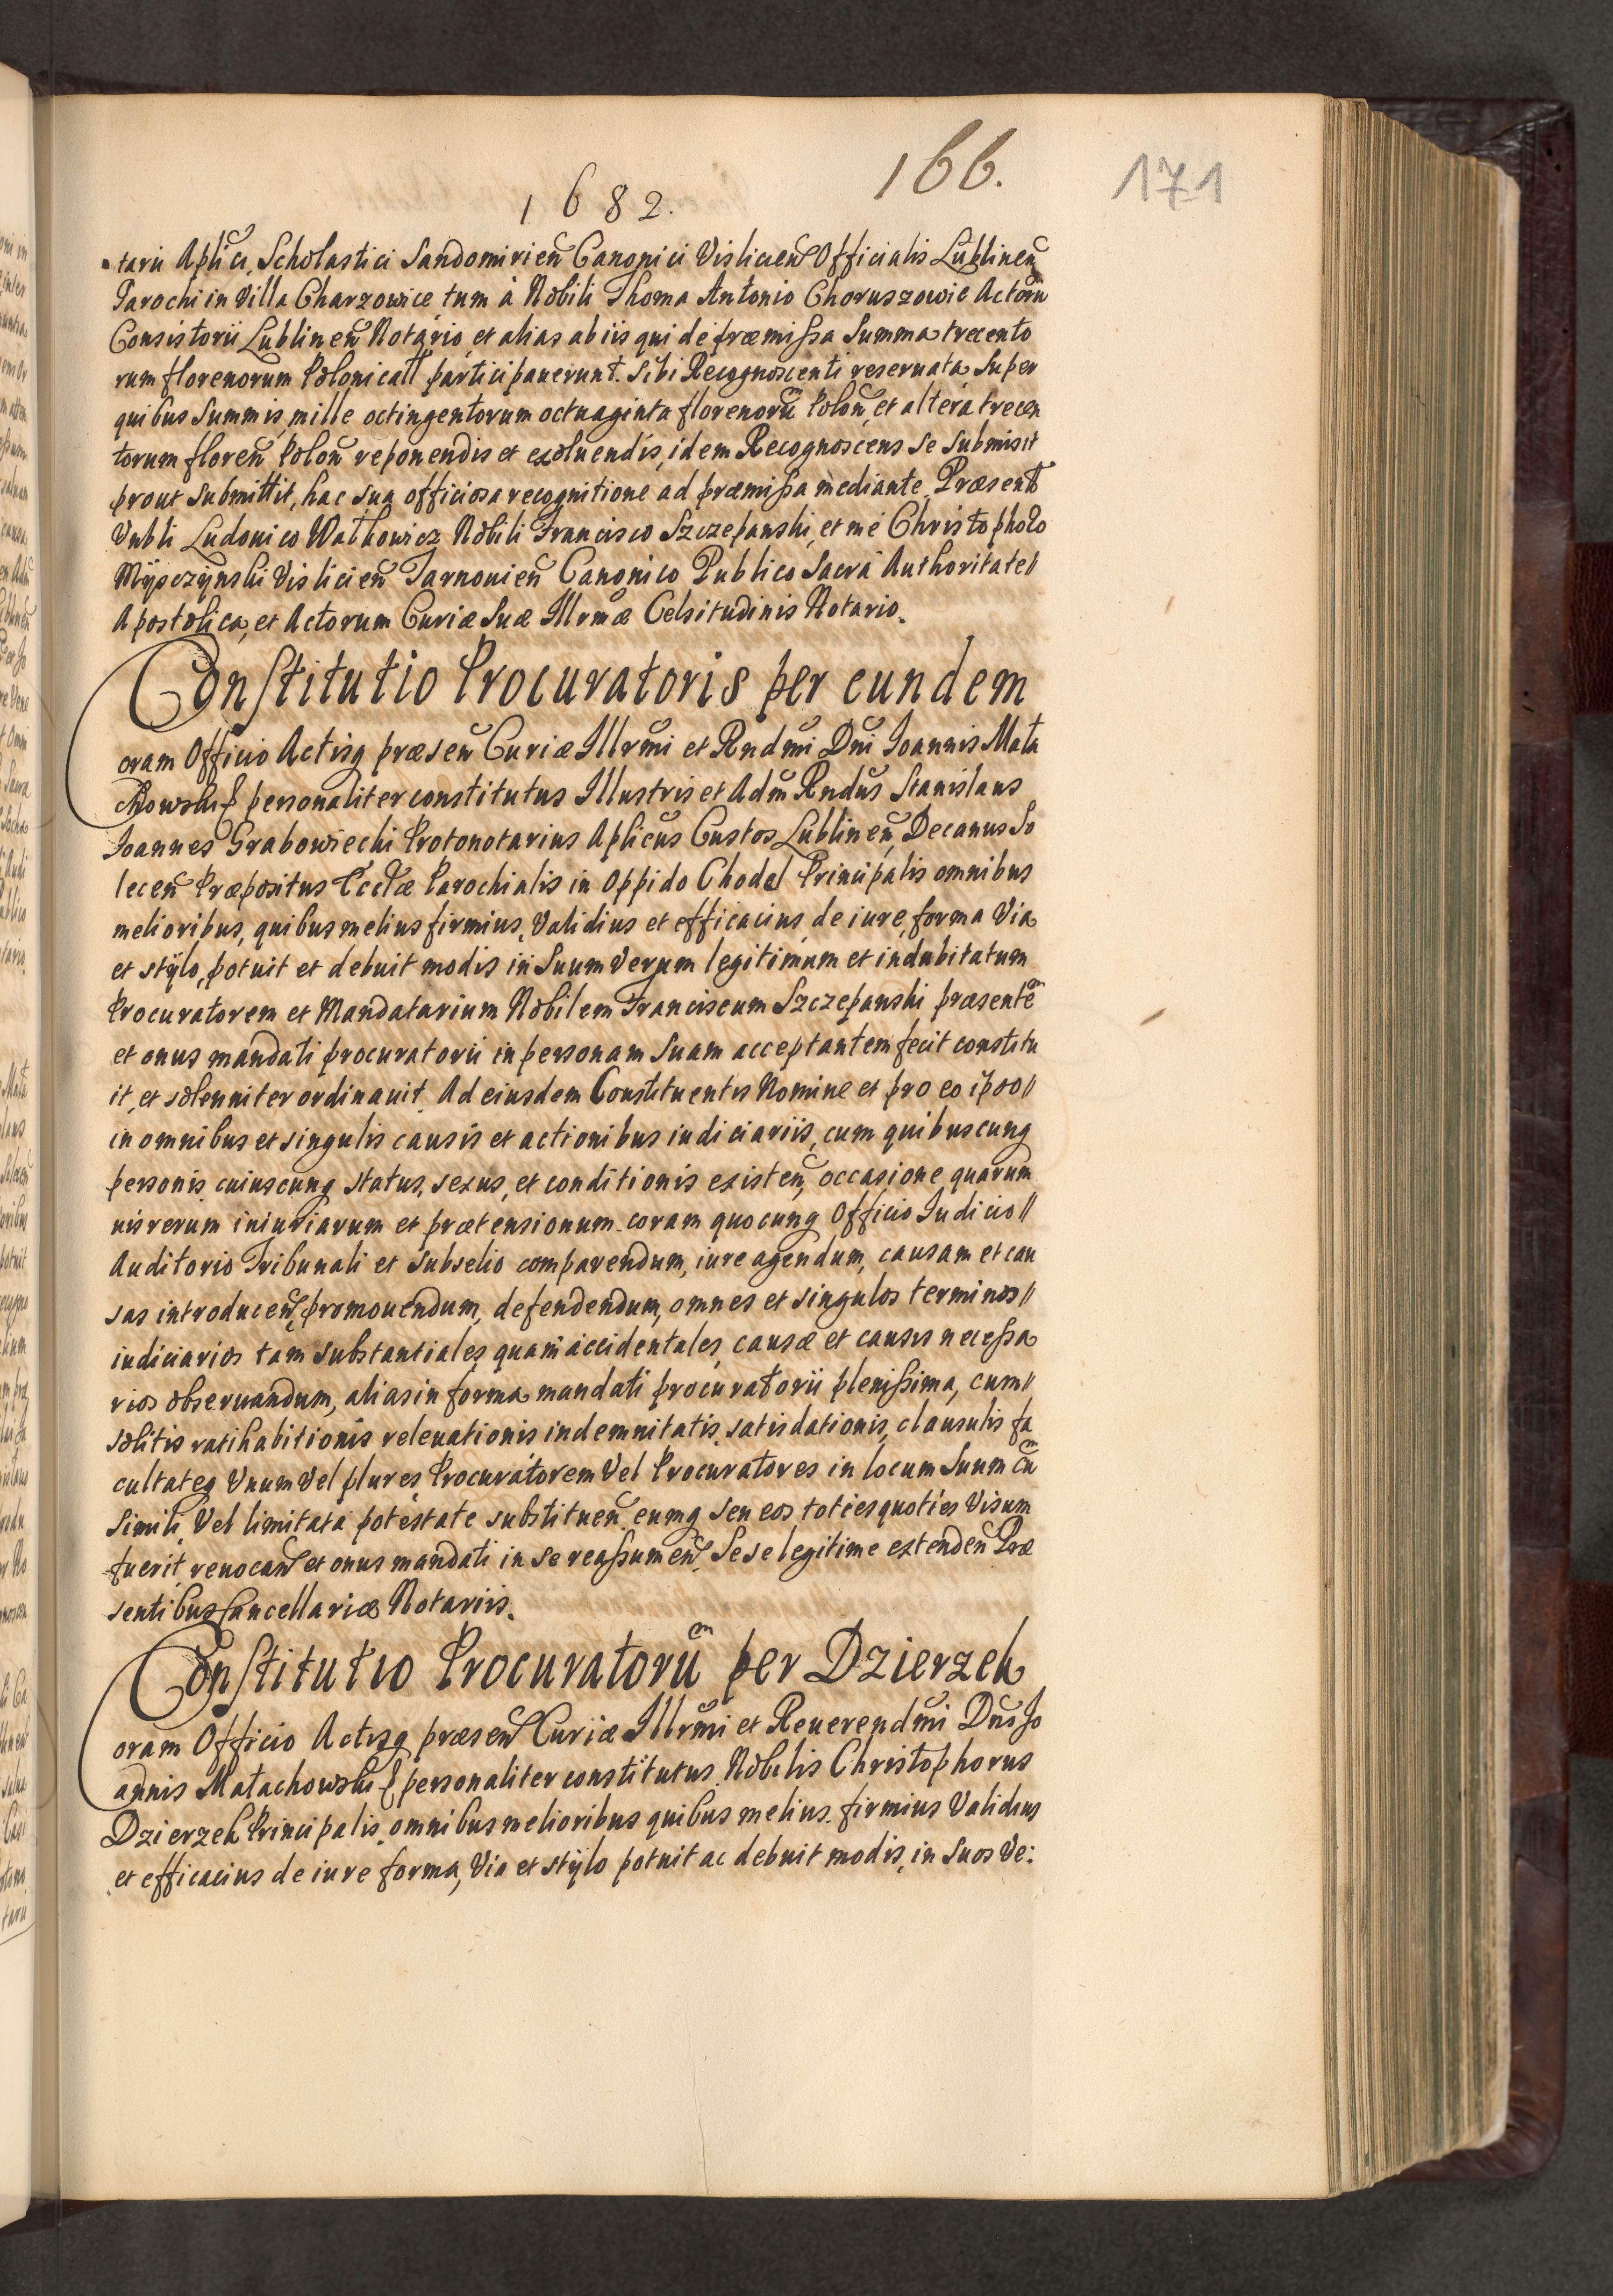 166.
171
1682.
tarii Aplici, Scholastici Sandomirien Canonici Vislicien Officialis Lublinen
Parochi in Villa Charzowice tum à Nobili Thoma Antonio Choruszowic Actorū
Consistorii Lublinen Notario, et alias ab iis qui de præmissa Summa trecento
rum florenorum Polonicall participauerunt. sibi Recognoscenti reseruata Super
quibus Summis mille octingentorum octuaginta florenorū Polon, et altera trecen
torum floren Polon reponendis et exoluendis, idem Recognoscens se submisit
prout submittit, hac sua officiosa recognitione ad præmissa mediante. Præsent
Vnbli Ludouico Wathowicz Nobili Francisco Szczepanski, et me Christophoro
Mÿsczÿnski Vislicien Tarnouien Canonico Publico Sacra Authoritate//
Apostolica, et Actorum Curiæ Suæ Illrmæ Celsitudinis Notario.
Constitutio Procuratoris per eundem
oram Officio Actisq præsen Curiæ Illrmi et Rndmi Dni Joannis Mała
chowski personaliter constitutus Illustris et Adm Rndus Stanislaus
Joannes Grabowiecki Protonotarius Aplicus Custos Lublinen, Decanus So
lecen Præpositus Eccłæ Parochialis in Oppido Chodel Principalis omnibus
melioribus, quibus melius firmius, Validius et efficacius de iure, forma Via
et stÿlo, potuit et debuit modis in Suum Verum legitimum et indubitatum
Procuratorem et Mandatarium Nobilem Franciscum Szczepanski præsentē
et onus mandati procuratorii in personam suam acceptantem fecit constitu
it, et solenniter ordinauit. Ad eiusdem Constituentis Nomine et pro eo ipso//
in omnibus et singulis causis et actionibus iudiciariis, cum quibuscunq
personis cuiuscunq status, sexus, et conditionis existen, occasione quarum
uis rerum iniuriarum et prætensionum coram quocunq Officio Judicio//
Auditorio Tribunali et Subselio comparendum, iure agendum, causam et cau
sas introducen, promouendum, defendendum, omnes et singulos terminos//
iudiciarios tam substantiales quam accidentales, causæ et causis necessa
rios obseruandum, alias in forma mandati procuratorii plenissima, cum//
solitis ratihabitionis releuationis indemnitatis satisdationis, clausulis fa
cultateq Vnum Vel plures Procuratorem Vel Procuratores in locum Suum cū
Simili Vel limitata potestate substituen. eumq seu eos toties quoties Visum
fuerit, reuocan et onus mandati in se reassumen, Sese legitime extenden Præ
sentibus Cancellariæ Notariis.
Constitutio Procuratorū per Dzierzek
oram Officio Actisq præsen Curiæ Illrmi et Reuerendmi Dni Jo
annis Małachowski personaliter constitutus Nobilis Christophorus
Dzierzek Principalis, omnibus melioribus quibus melius firmius Validius
et efficacius de iure forma, Via et stÿlo potuit ac debuit modis, in Suos Ve: